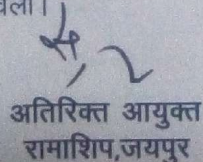 अतिरिक्त आयुक्त
रामाशिप,जयपुर